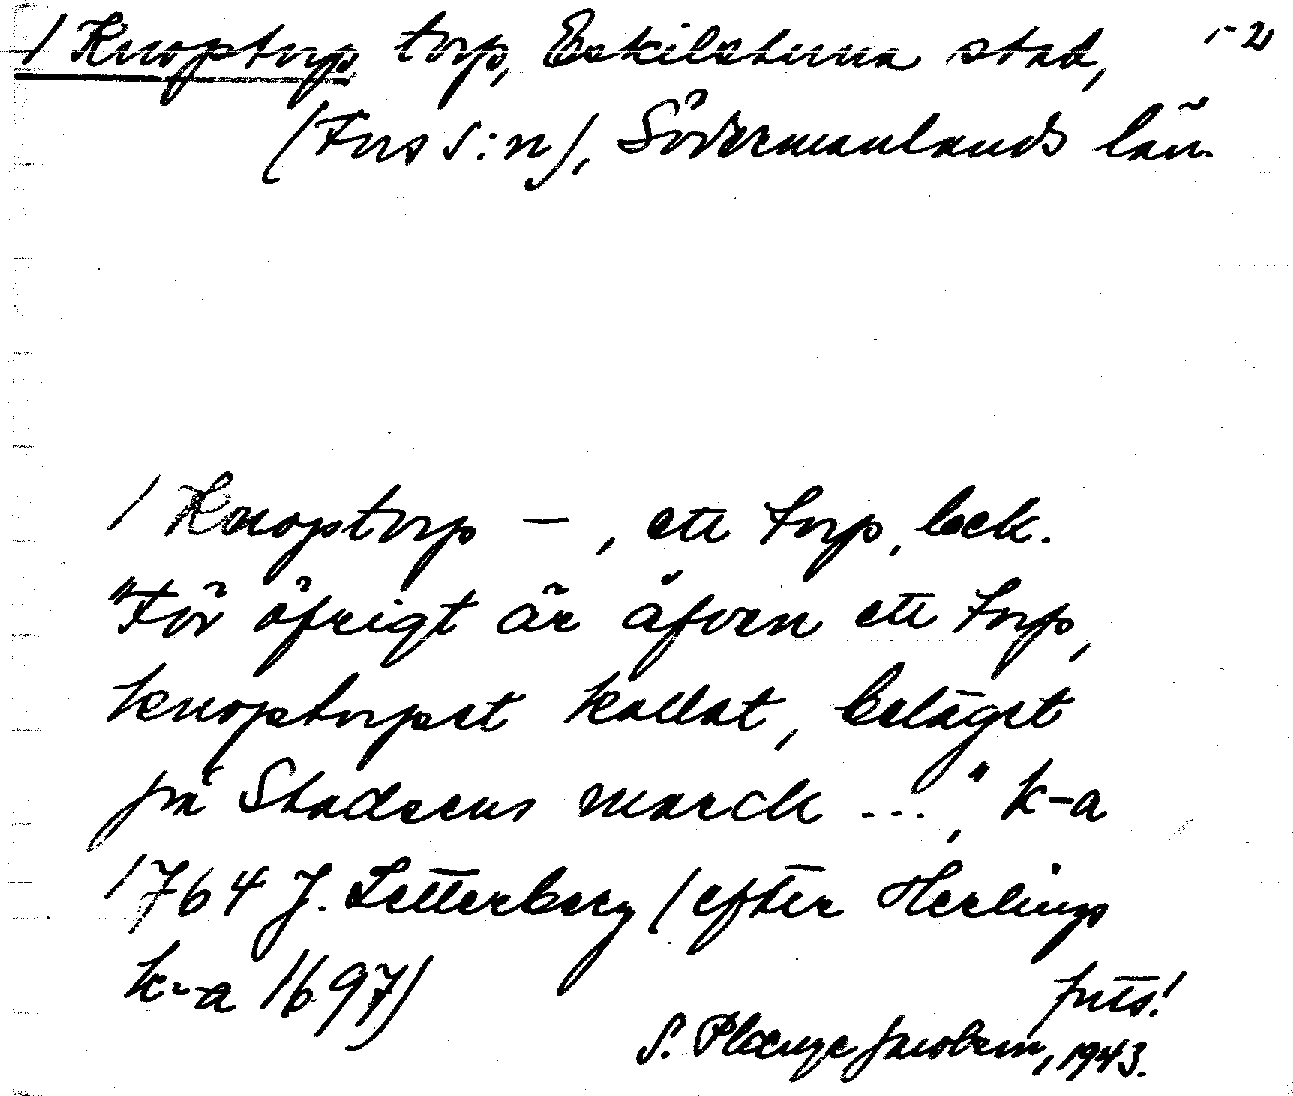 / Knoptorp torp, Eskilstuna stad, 1-2
(Fors s:n), Södermanlands län.
/ Knoptorp — , ett torp, beck.
"För öfrigt är äfven ett torp,
knoptorpet kallat, beläget
på Stadsens marck ...", k-a
1764 J. Zetterberg (efter Herlings
k-a 1697)
forts!
S. Plænge Jacobson, 1943.